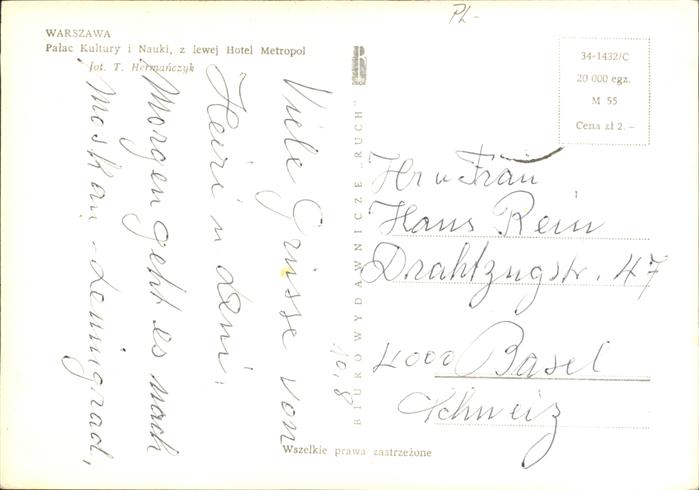 PL-
WARSZAWA
Pałac Kultury i Nauki, z lewej Hotel Metropol
fot. T. Hermańczyk
34-1432/C
20 000 egz.
M 55
Cena zł 2.–
Viele Grüsse von
Heiri u dani.
Morgen geht es nach
Moskau - Leningrad,
10.8
BIURO WYDAWNICZE „RUCH"
Hr u Frau
Hans Rein
Drahtzugstr. 47
4000 Basel
Schweiz
Wszelkie prawa zastrzeżone